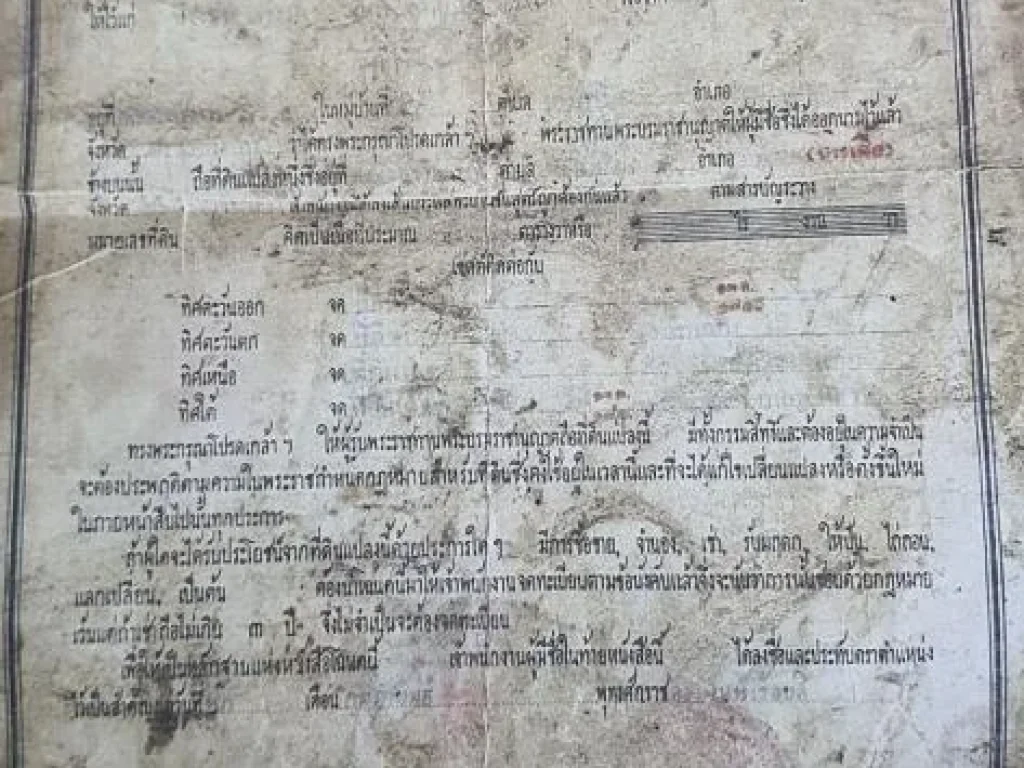 ให้ไว้แก่
อยู่ที่ ในหมู่บ้านที่ ตำบล อำเภอ
จังหวัด ว่าได้ทรงพระกรุณาโปรดเกล้า ฯ พระราชทานพระบรมราชานุญาตให้ผู้มีชื่อซึ่งได้ออกนามไว้แล้ว
ข้างบนนั้น ถือที่ดินแปลงหนึ่งซึ่งอยู่ที่ ตำบล อำเภอ
จังหวัด ตามสารบัญระวาง
หมายเลขที่ดิน คิดเป็นเนื้อที่ประมาณ ตารางวาหรือ ไร่ งาน วา
เขตที่ติดต่อกัน
ทิศตะวันออก จด
ทิศตะวันตก จด
ทิศเหนือ จด
ทิศใต้ จด
ทรงพระกรุณาโปรดเกล้า ฯ ให้ผู้รับพระราชทานพระบรมราชานุญาตถือที่ดินแปลงนี้ มีทั้งกรรมสิทธิ์และต้องอยู่ในความจำเป็น
จะต้องประพฤติตามความในพระราชกำหนดกฎหมายสำหรับที่ดินซึ่งคงใช้อยู่ในเวลานี้และที่จะได้แก้ไขเปลี่ยนแปลงหรือตั้งขึ้นใหม่
ในภายหน้าสืบไปนั้นทุกประการ
ถ้าผู้ใดจะได้รับประโยชน์จากที่ดินแปลงนี้ด้วยประการใด ๆ มีการซื้อขาย, จำนอง, เช่า, รับมฤดก, ให้ปัน, ไถ่ถอน,
แลกเปลี่ยน, เป็นต้น ต้องนำโฉนดนี้มาให้เจ้าพนักงานจดทะเบียนตามข้อบังคับแล้วจึงจะนับว่าการนั้นชอบด้วยกฎหมาย
เว้นแต่ถ้าเช่าถือไม่เกิน ๓ ปี จึงไม่จำเป็นจะต้องจดทะเบียน
เพื่อให้เป็นหลักฐานแห่งหนังสือโฉนดนี้ เจ้าพนักงานผู้มีชื่อในท้ายหนังสือนี้ ได้ลงชื่อและประทับตราตำแหน่ง
ไว้เป็นสำคัญแต่วันที่ เดือน พุทธศักราช